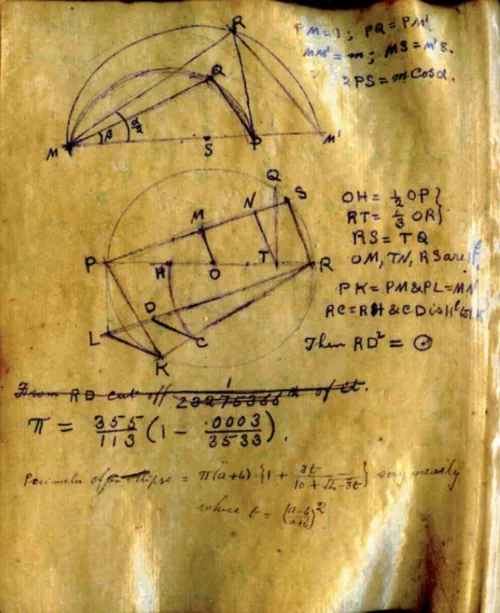 PM=1; PQ = PM'
MM' = m; MS = M'S.
2PS = m Cos α.
R
Q
β
M
S
P
M'
Q
S
M
N
P
H
O
T
R
D
L
C
K
OH = 1/2 OP}
RT = 1/3 OR}
RS = TQ
OM, TN, RS are
PK = PM & PL = MN
RC = RH & CD is
Then RD² = ⊙
From RD cut off 1/23275366 th of it.
π = 355/113 (1 - .0003/3533).
Perimeter of ellipse = π(a+b) {1 + 3t/(10 + √(4-3t))} very nearly
where t = ((a-b)/(a+b))²